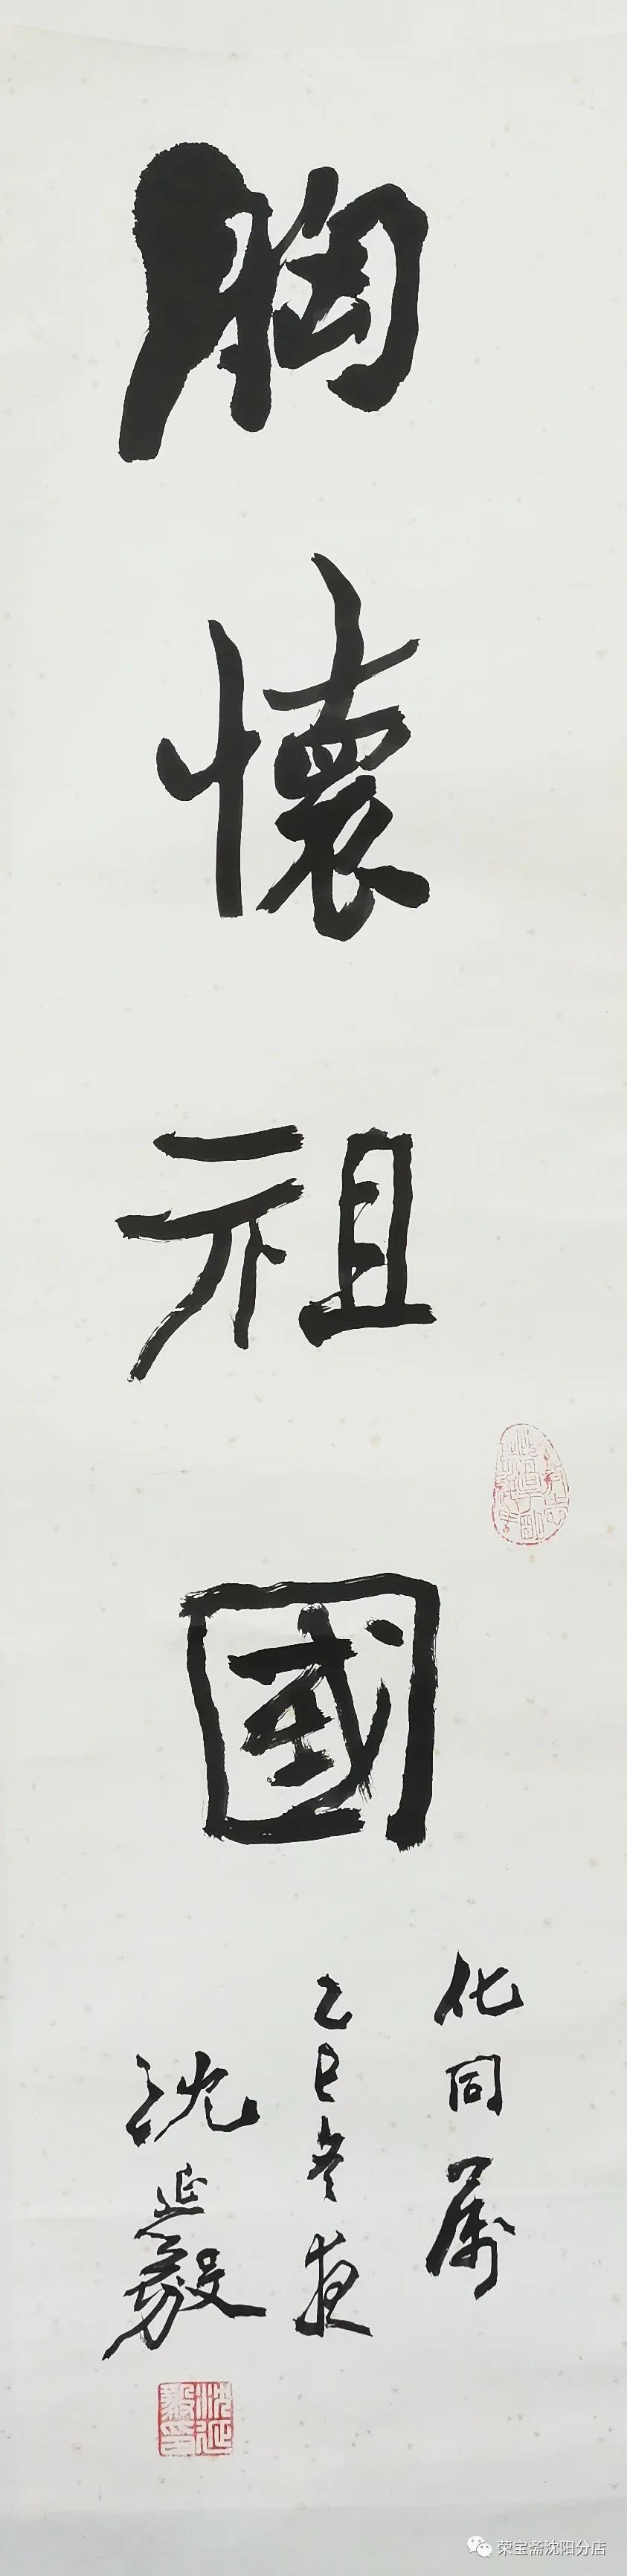 胸懷祖國
化同属
乙巳冬夜
沈延毅
沈延毅印
荣宝斋沈阳分店